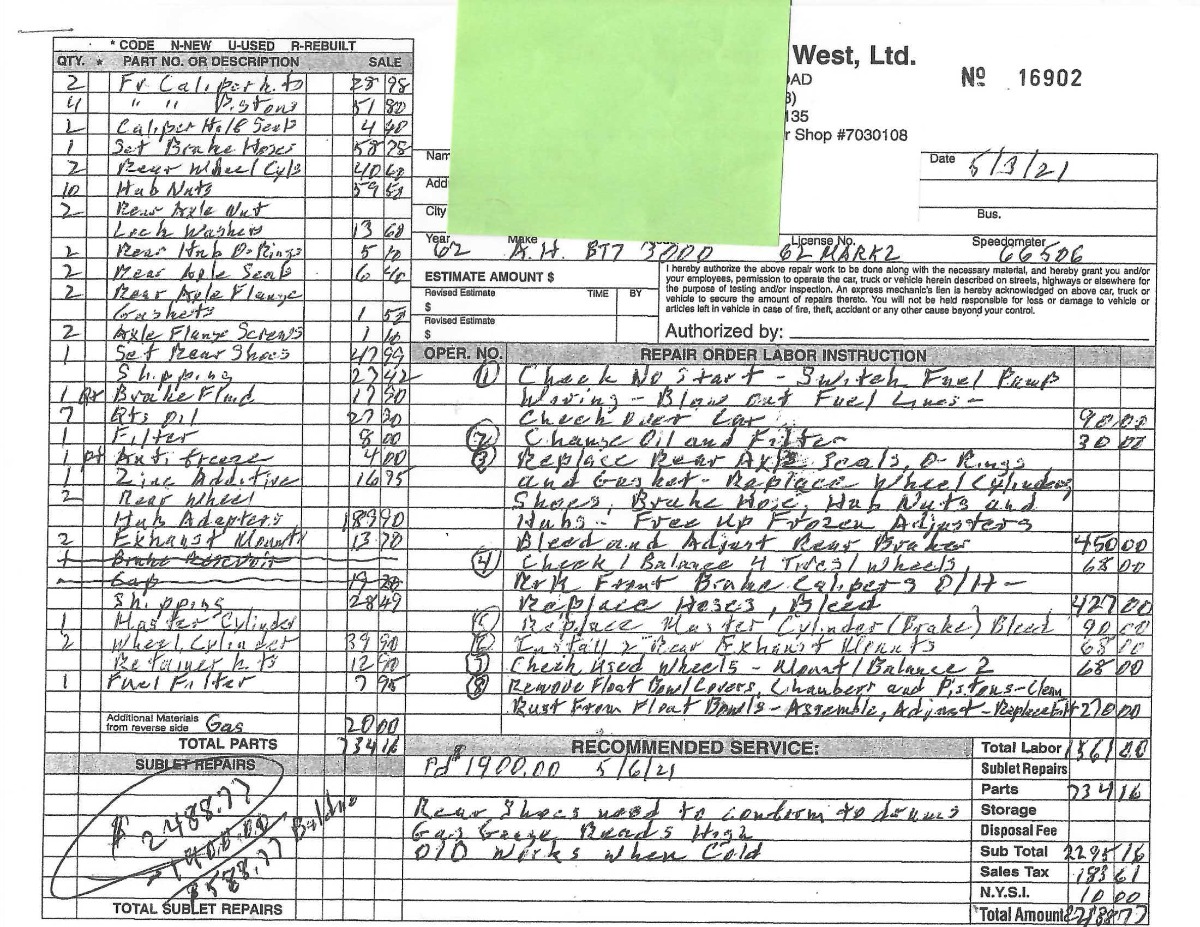 * CODE N-NEW U-USED R-REBUILT
QTY. * PART NO. OR DESCRIPTION SALE
2 Fr Caliper kits 28 98
4 " " Pistons 51 80
2 Caliper Half Seals 4 40
1 Set Brake Hoses 58 75
2 Rear Wheel Cyls 40 60
10 Hub Nuts 59 50
2 Rear Axle Nut
Lock Washers 13 60
2 Rear Hub O-Rings 5 10
2 Rear Axle Seals 6 40
2 Rear Axle Flange
Gaskets 1 50
2 Axle Flange Screws 1 10
1 Set Rear Shoes 47 99
Shipping 27 42
1 Brake Fluid 17 50
7 Qts Oil 27 30
1 Filter 8 00
1 pt Antifreeze 4 00
1 Zinc Additive 16 95
2 Rear Wheel
Hub Adapters 189 90
2 Exhaust Mounts 13 70
1 Brake Reservoir
Cap
Shipping 28 49
1 Master Cylinder
2 Wheel Cylinder 39 90
Retainer kits 12 90
1 Fuel Filter 7 95
Additional Materials
from reverse side Gas 20 00
TOTAL PARTS 734 16
SUBLET REPAIRS
$ 2488.77
-1900.00
$588.77 Baldue
TOTAL SUBLET REPAIRS
West, Ltd.
OAD
135
r Shop #7030108
Nº 16902
Nam
Date 5/3/21
Add
City
Bus.
Year Make License No. Speedometer
62 A.H. BT7 3000 62 MARK2 66506
ESTIMATE AMOUNT $
Revised Estimate TIME BY
$
Revised Estimate
$
I hereby authorize the above repair work to be done along with the necessary material, and hereby grant you and/or
your employees, permission to operate the car, truck or vehicle herein described on streets, highways or elsewhere for
the purpose of testing and/or inspection. An express mechanic's lien is hereby acknowledged on above car, truck or
vehicle to secure the amount of repairs thereto. You will not be held responsible for loss or damage to vehicle or
articles left in vehicle in case of fire, theft, accident or any other cause beyond your control.
Authorized by:
OPER. NO. REPAIR ORDER LABOR INSTRUCTION
1 Check No Start - Switch Fuel Pump
Wiring - Blow out Fuel Lines -
Check Over Car 90 00
2 Change Oil and Filter 30 00
3 Replace Rear Axle Seals, O-Rings
and Gasket - Replace Wheel Cylinders,
Shoes, Brake Hose, Hub Nuts and
Hubs - Free Up Frozen Adjusters
Bleed and Adjust Rear Brakes 450 00
4 Check / Balance 4 Tires / Wheels, 68 00
R+R Front Brake Calipers O/H -
Replace Hoses, Bleed 427 00
5 Replace Master Cylinder (Brake) Bleed 90 00
6 Install 2 Rear Exhaust Mounts 68 00
7 Check Used Wheels - Mount / Balance 2 68 00
8 Remove Float Bowl Covers, Chambers and Pistons - Clean
Rust From Float Bowls - Assemble, Adjust - Replace Filt 270 00
RECOMMENDED SERVICE:
Pd $1900.00 5/6/21
Rear Shoes need to conform to drums
Gas Gauge Reads High
O/D Works when Cold
Total Labor 1561 00
Sublet Repairs
Parts 734 16
Storage
Disposal Fee
Sub Total 2295 16
Sales Tax 183 61
N.Y.S.I. 10 00
Total Amount 2488 77